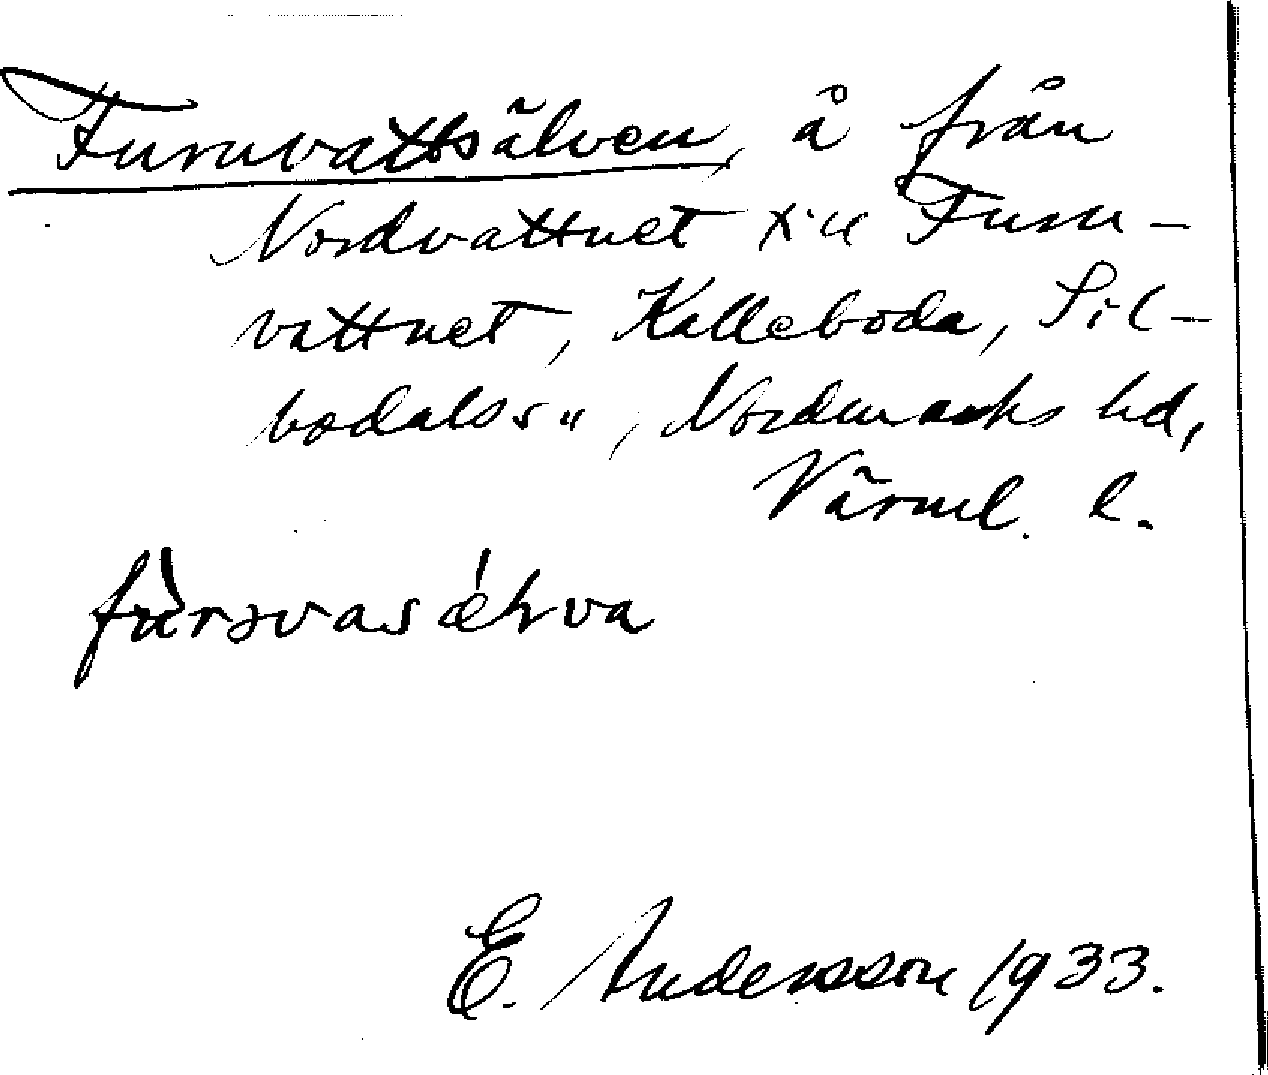 Furuvattsälven, å från
Nordvattnet till Furu-
vattnet, Kalleboda, Sil-
bodals sn, Nordmarks hd,
Värml. l.
E. Andersson 1933.